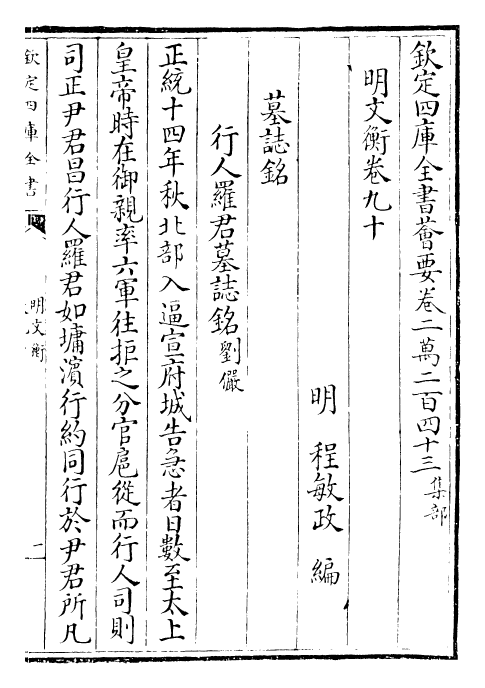 欽定四庫全書薈要卷二萬二百四十三集部
明文衡卷九十
明 程敏政 編
墓誌銘
行人羅君墓誌銘劉儼
正統十四年秋北部入逼宣府城告急者日數至太上
皇帝時在御親率六軍往拒之分官扈從而行人司則
司正尹君昌行人羅君如墉濵行約同行於尹君所凡
欽定四庫全書
明文衡
二